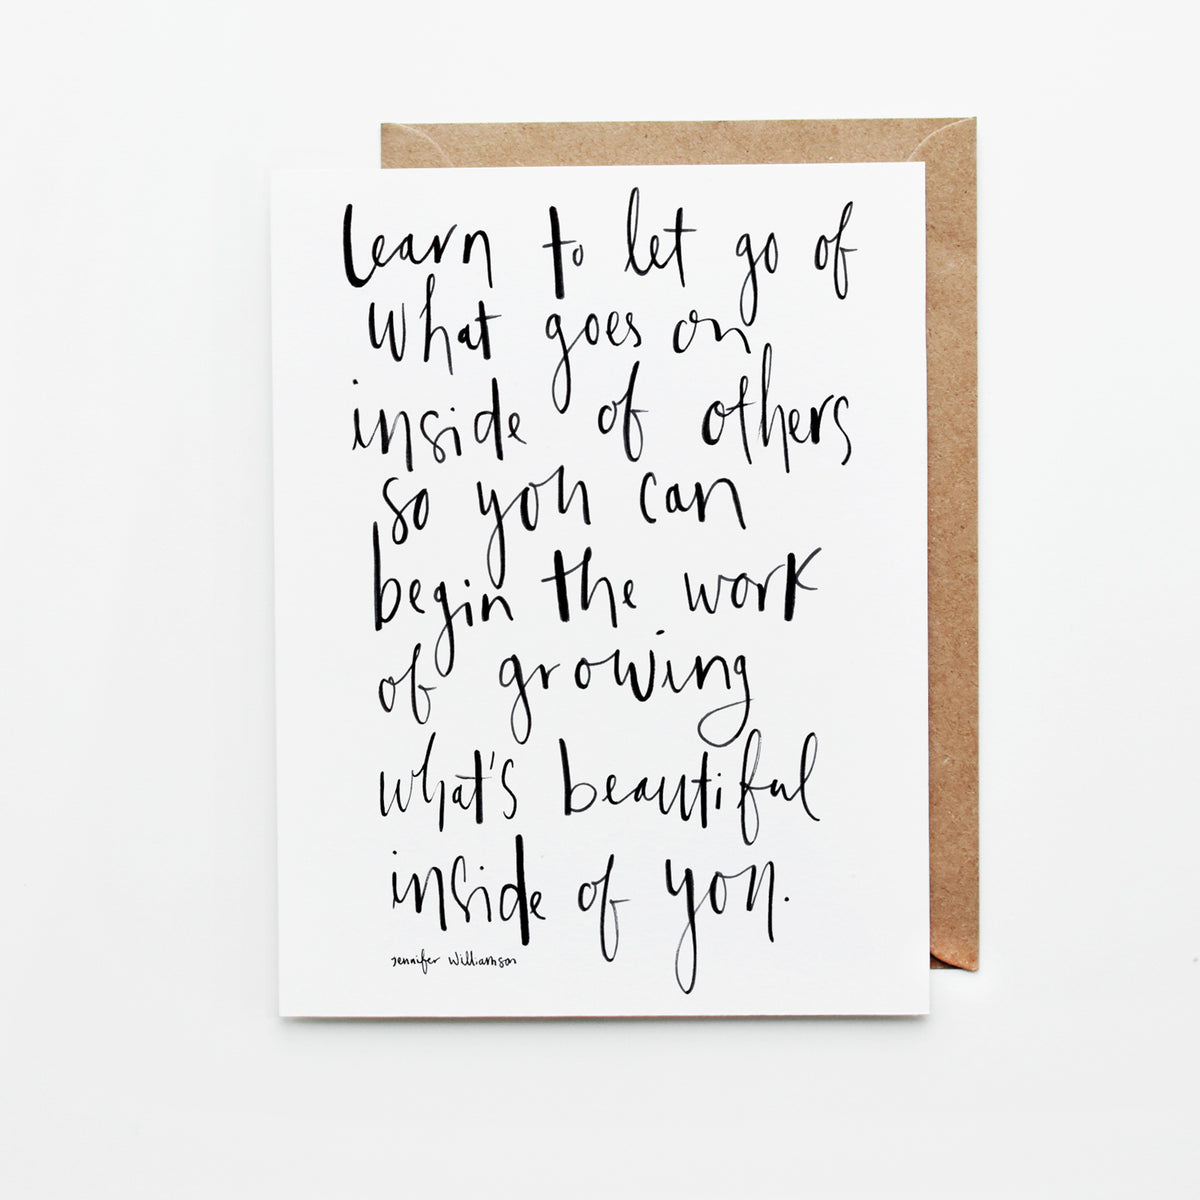 Learn to let go of
what goes on
inside of others
so you can
begin the work
of growing
what's beautiful
inside of you.
Jennifer Williamson